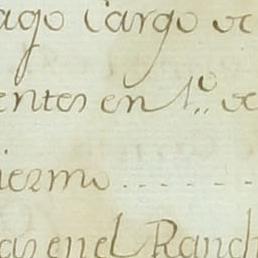 ago Cargo de
entes en 1.º de
iermo
as en el Ranch